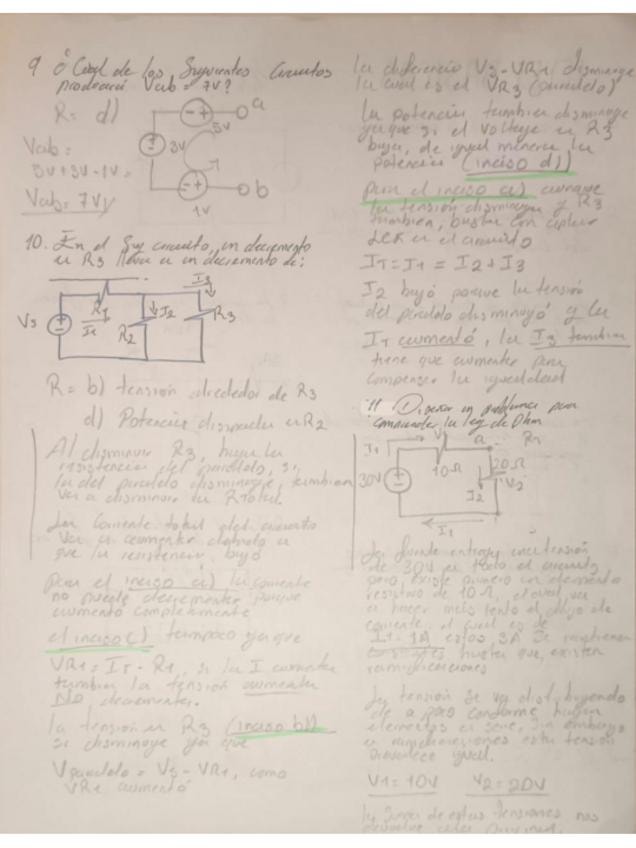 9 ¿Cuál de los Siguientes Circuitos
producirá Vab = 7V?
R= d)
Vab =
3V+5V-1V=
Vab= 7V
a
5V
3V
b
1V
10. En el circuito, un decremento
en R3 lleva a un decremento de:
I3
Vs
R1
It
I2
R2
R3
R= b) tensión alrededor de R3
d) Potencia disipada en R2
Al disminuir R3, baja la
resistencia del paralelo, si
la del paralelo disminuye, tambien
va a disminuir la RTotal.
La Corriente total del circuito
va a aumentar debido a
que la resistencia bajó
para el inciso a) la corriente
no puede decrementar porque
aumentó completamente
el inciso c) tampoco ya que
VR1 = IT · R1, si la I aumenta
tambien la tensión aumenta
NO decrementa.
la tensión en R3 (inciso b))
si disminuye ya que
Vparalelo = Vs - VR1, como
VR1 aumentó
la diferencia Vs-VR1 disminuye
la cual es el VR3 (paralelo)
la potencia tambien disminuye
ya que si el voltaje en R3
baja, de igual manera la
potencia (inciso d))
para el inciso a) aunque
la tensión disminuya y R3
tambien, basta con aplicar
LCK en el circuito
IT=I1 = I2+I3
I2 bajó porque la tensión
del paralelo disminuyó y la
IT aumentó, la I3 tambien
tiene que aumentar para
compensar la igualdad
11 Diseñar un problema para
comprender la ley de Ohm
I1
V1
a
R1
10Ω
20Ω
30V
I2
V2
I1
La fuente entrega una tensión
de 30V a todo el circuito
pero, existe primero un elemento
resistivo de 10Ω, el cual va
a hacer más lento el flujo de
corriente, el cual es de
I1= 1A
hasta que, existen
ramificaciones
La tensión se va distribuyendo
de a poco conforme hayan
elementos en serie, sin embargo
en ramificaciones esta tensión
prevalece igual.
V1= 10V V2= 20V
la suma de estas tensiones nos